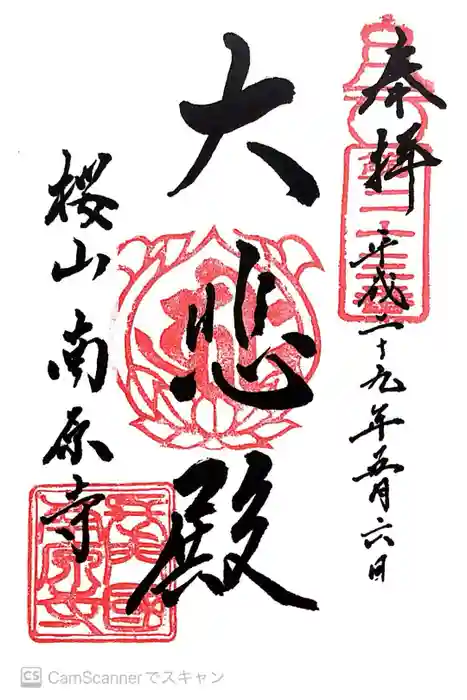 奉拝
平成二十九年五月六日
大悲殿
桜山南原寺
CS CamScannerでスキャン